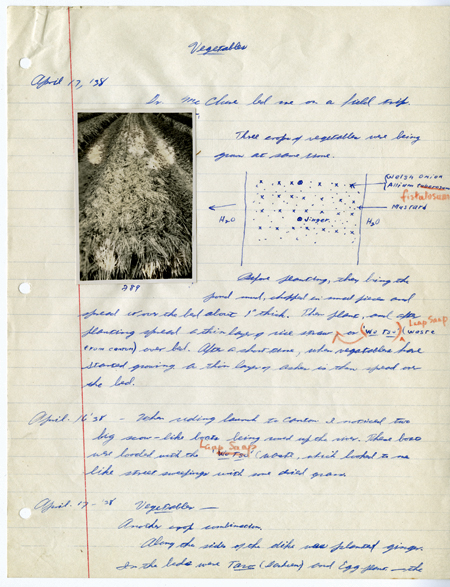 Vegetables
April 17, '38
Dr. McClure led me on a field trip.
Three crops of vegetables were being
grown at same time.
Welsh onion
Allium tuberosum
fistulosum
Mustard
H2O
Ginger
H2O
289
Before planting, they bring the
pond mud, chopped in small pieces and
spread it over the bed about 1" thick. Then plant, and after
Laap Saap
planting spread a thin layer of rice straw or (Wo Tso) (waste
from Canton) over bed. After a short time, when vegetables have
started growing a thin layer of ashes is then spread over
the bed.
April 16 '38 - When riding launch to Canton I noticed two
big scow-like boats being used up the river. These boats
Laap Saap
were loaded with the (waste, which looked to me
like street sweepings with some dried grass.
April 17 - '38 Vegetables —
Another crop combination.
Along the sides of the dike was planted ginger.
In the beds were Taro and Egg plant - the